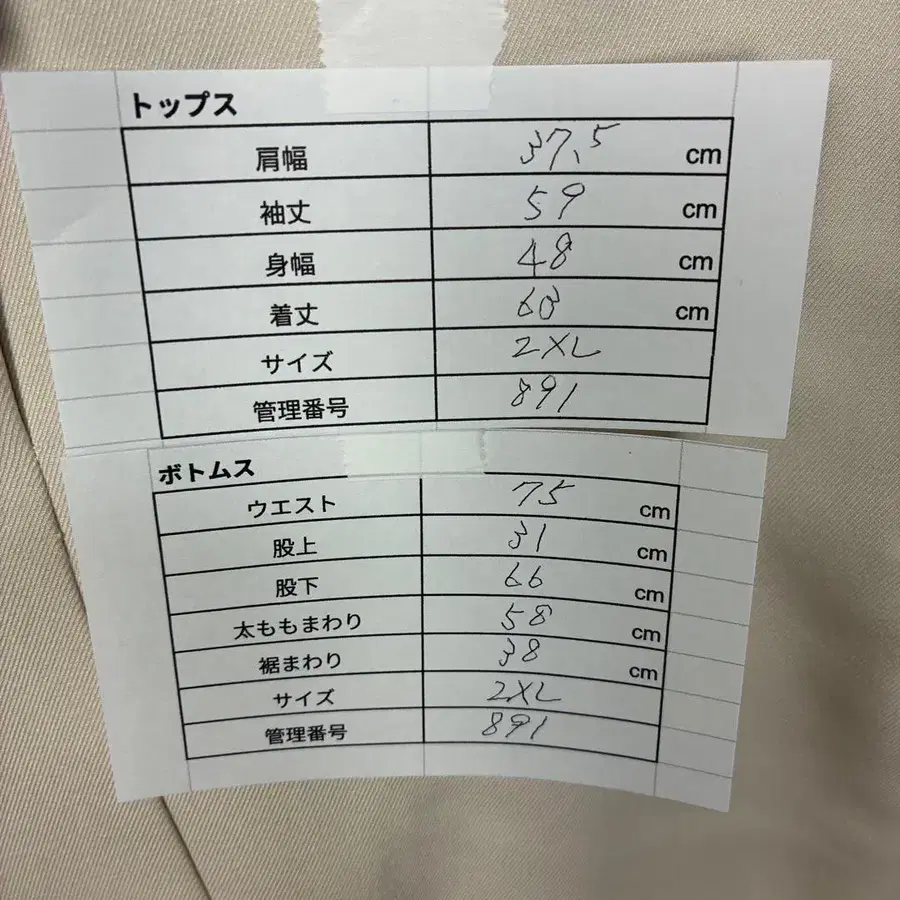 トップス
肩幅 37.5 cm
袖丈 59 cm
身幅 48 cm
着丈 60 cm
サイズ 2XL
管理番号 891
ボトムス
ウエスト 75 cm
股上 31 cm
股下 66 cm
太ももまわり 58 cm
裾まわり 38 cm
サイズ 2XL
管理番号 891